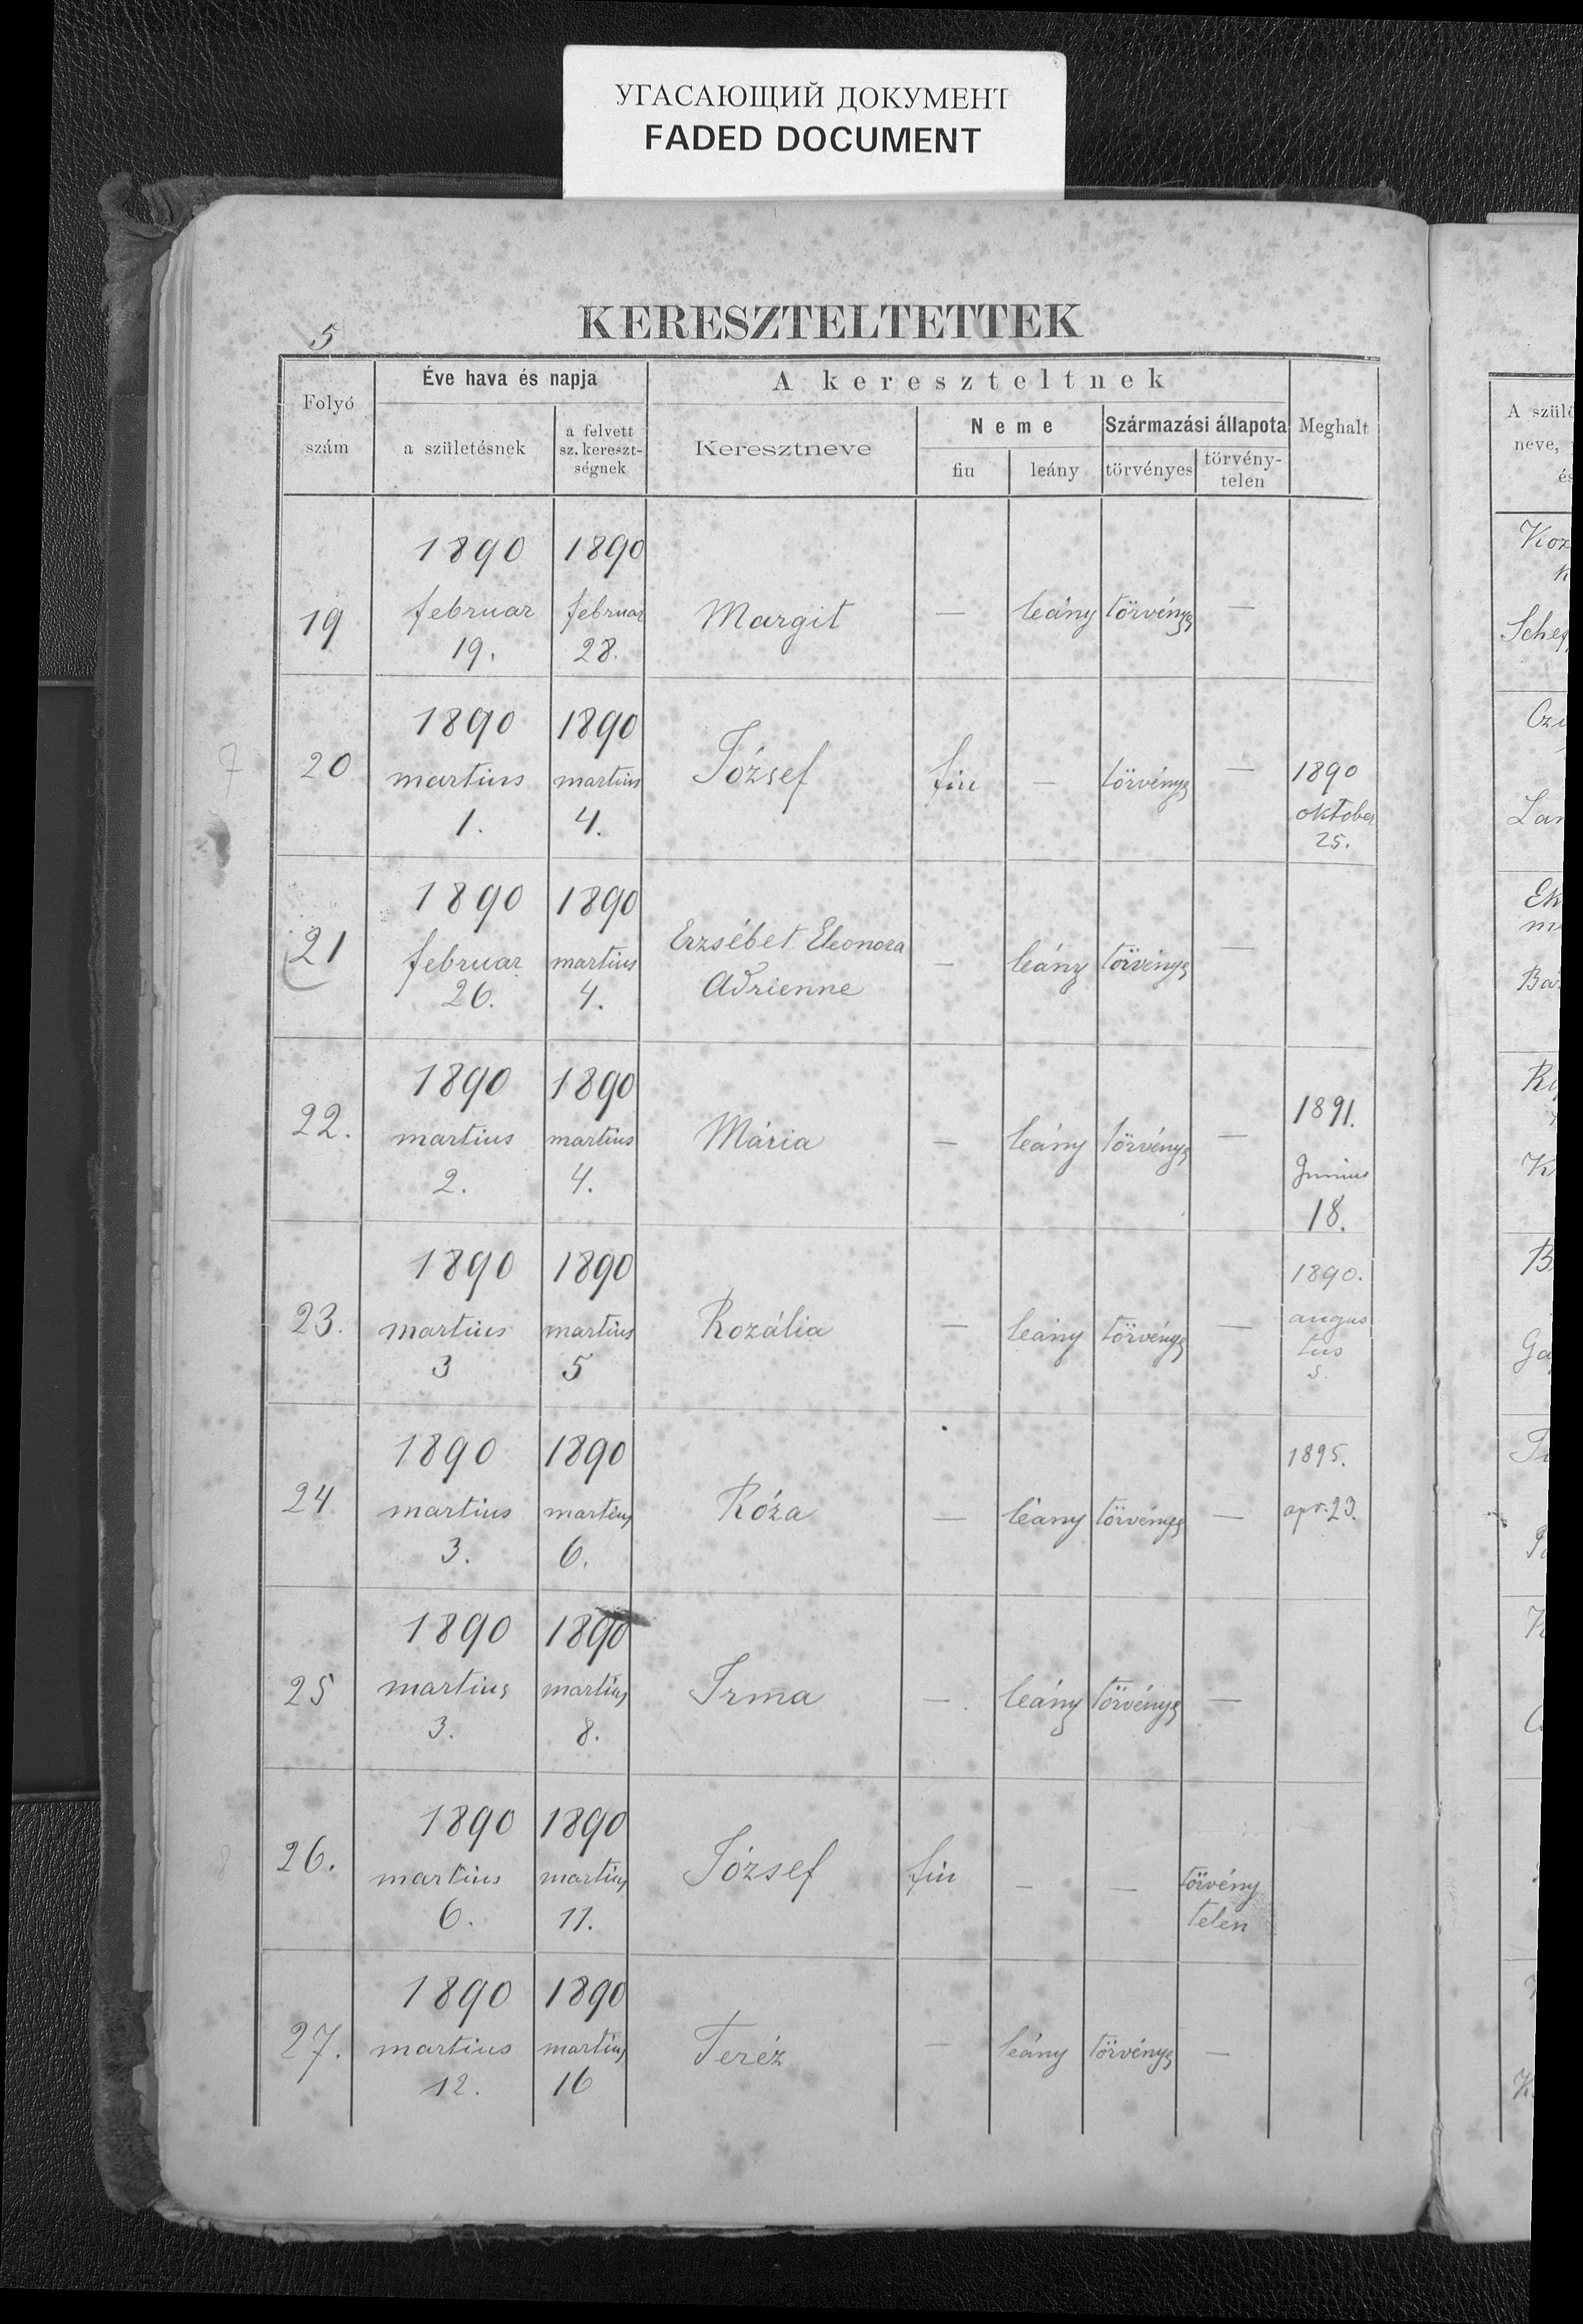 УГАСАЮЩИЙ ДОКУМЕНТ
FADED DOCUMENT
5
KERESZTELTETTEK
Folyó szám
Éve hava és napja
a születésnek
a felvett sz. kereszt-ségnek
A kereszteltnek
Keresztneve
Neme
fiu
leány
Származási állapota
törvényes
törvény-telen
Meghalt
A szül
neve,
és
1890 1890
19 februar februar Margit — leány törvényes —
19. 28.
1890 1890
20 martius martius József fiu — törvényes — 1890
1. 4. oktober
25.
1890 1890
21 februar martius Erzsébet Eleonora — leány törvényes —
26. 4. Adrienne
1890 1890 1891.
22. martius martius Mária — leány törvényes — Junius
2. 4. 18.
1890 1890 1890.
23. martius martius Rozália — leány törvényes — augus
3 5 tus
5.
1890 1890 1895.
24 martius martius Róza — leány törvényes — apr. 23.
3. 6.
1890 1890
25 martius martius Irma — leány törvényes —
3. 8.
1890 1890
26. martius martius József fiu — — törvény
6. 11. telen
1890 1890
27. martius martius Teréz — leány törvényes —
12. 16